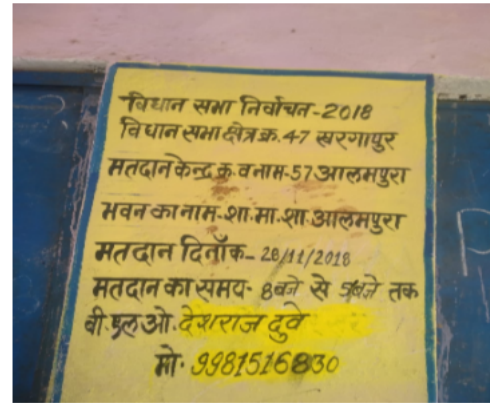 विधान सभा निर्वाचन-2018
विधान सभा क्षेत्र क्र. 47 खरगापुर
मतदान केन्द्र क्र. व नाम-57 आलमपुरा
भवन का नाम-शा.मा.शा.आलमपुरा
मतदान दिनाँक-28/11/2018
मतदान का समय- 8बजे से 5बजे तक
बी.एल.ओ.देशराज दुवे
मो. 9981516830